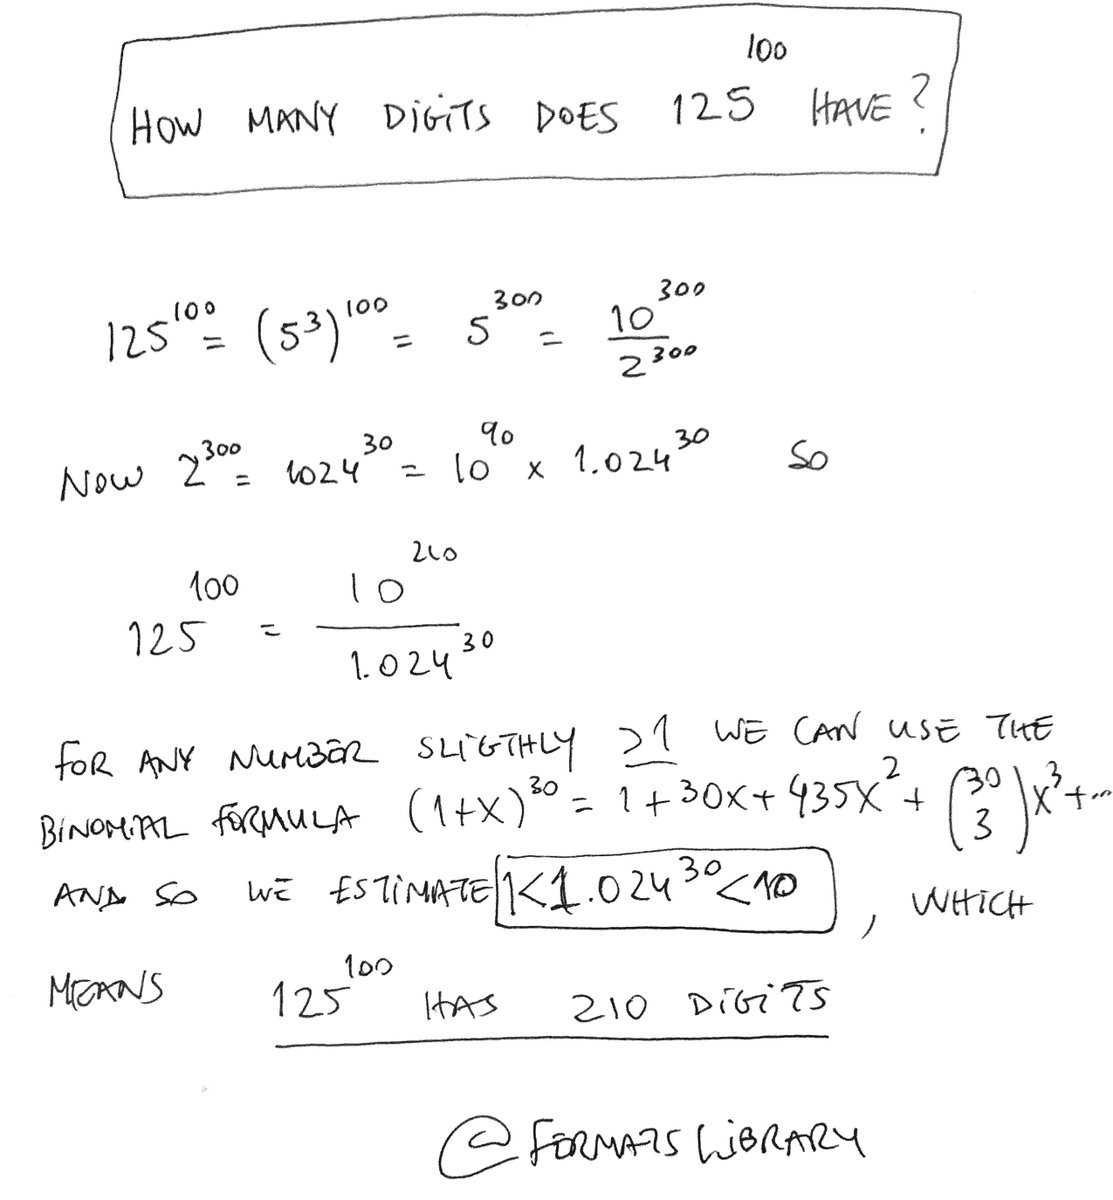 HOW MANY DIGITS DOES 125^100 HAVE?
125^100 = (5^3)^100 = 5^300 = 10^300 / 2^300
NOW 2^300 = 1024^30 = 10^90 x 1.024^30 SO
125^100 = 10^210 / 1.024^30
FOR ANY NUMBER SLIGTHLY ≥1 WE CAN USE THE
BINOMIAL FORMULA (1+x)^30 = 1+30x+435x^2+(30 3)x^3+...
AND SO WE ESTIMATE 1<1.024^30<10, WHICH
MEANS 125^100 HAS 210 DIGITS
@FERMATSLIBRARY